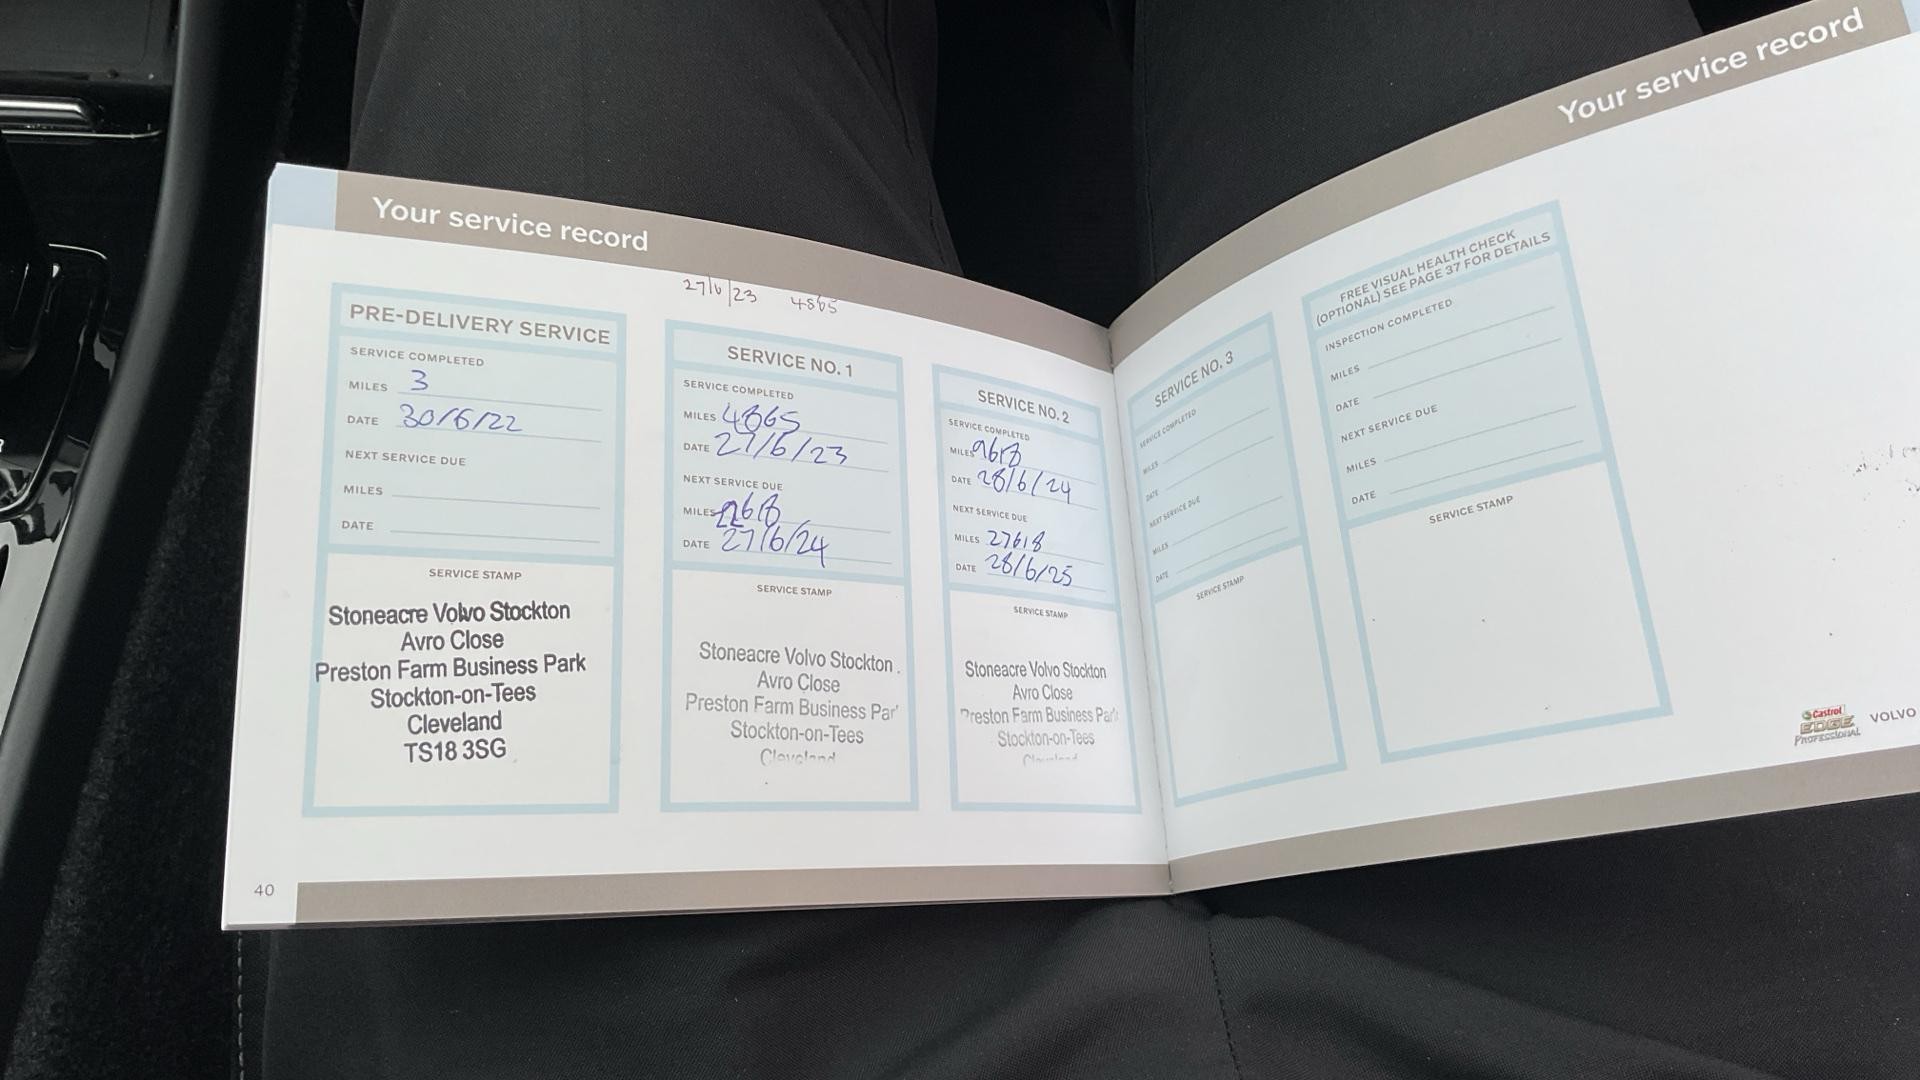 Your service record
27/6/23 4865
PRE-DELIVERY SERVICE
SERVICE COMPLETED
MILES 3
DATE 30/6/22
NEXT SERVICE DUE
MILES
DATE
SERVICE STAMP
Stoneacre Volvo Stockton
Avro Close
Preston Farm Business Park
Stockton-on-Tees
Cleveland
TS18 3SG
SERVICE NO. 1
SERVICE COMPLETED
MILES 4865
DATE 27/6/23
NEXT SERVICE DUE
MILES
DATE 27/6/24
SERVICE STAMP
Stoneacre Volvo Stockton
Avro Close
Preston Farm Business Par
Stockton-on-Tees
Cleveland
SERVICE NO. 2
SERVICE COMPLETED
MILES 9618
DATE 28/6/24
NEXT SERVICE DUE
MILES 27618
DATE 28/6/25
SERVICE STAMP
Stoneacre Volvo Stockton
Avro Close
Preston Farm Business Park
Stockton-on-Tees
Cleveland
40
Your service record
SERVICE NO. 3
SERVICE COMPLETED
MILES
DATE
NEXT SERVICE DUE
MILES
DATE
SERVICE STAMP
FREE VISUAL HEALTH CHECK
(OPTIONAL) SEE PAGE 37 FOR DETAILS
INSPECTION COMPLETED
MILES
DATE
NEXT SERVICE DUE
MILES
DATE
SERVICE STAMP
Castrol
EDGE
PROFESSIONAL
VOLVO